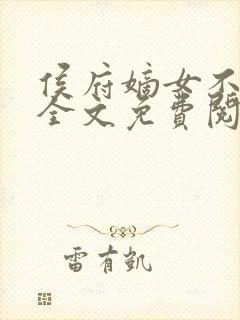 侯府嫡女不
全文免费阅
雷有凯